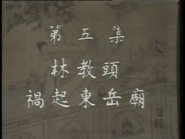 第五集
林教頭
禍起東岳廟